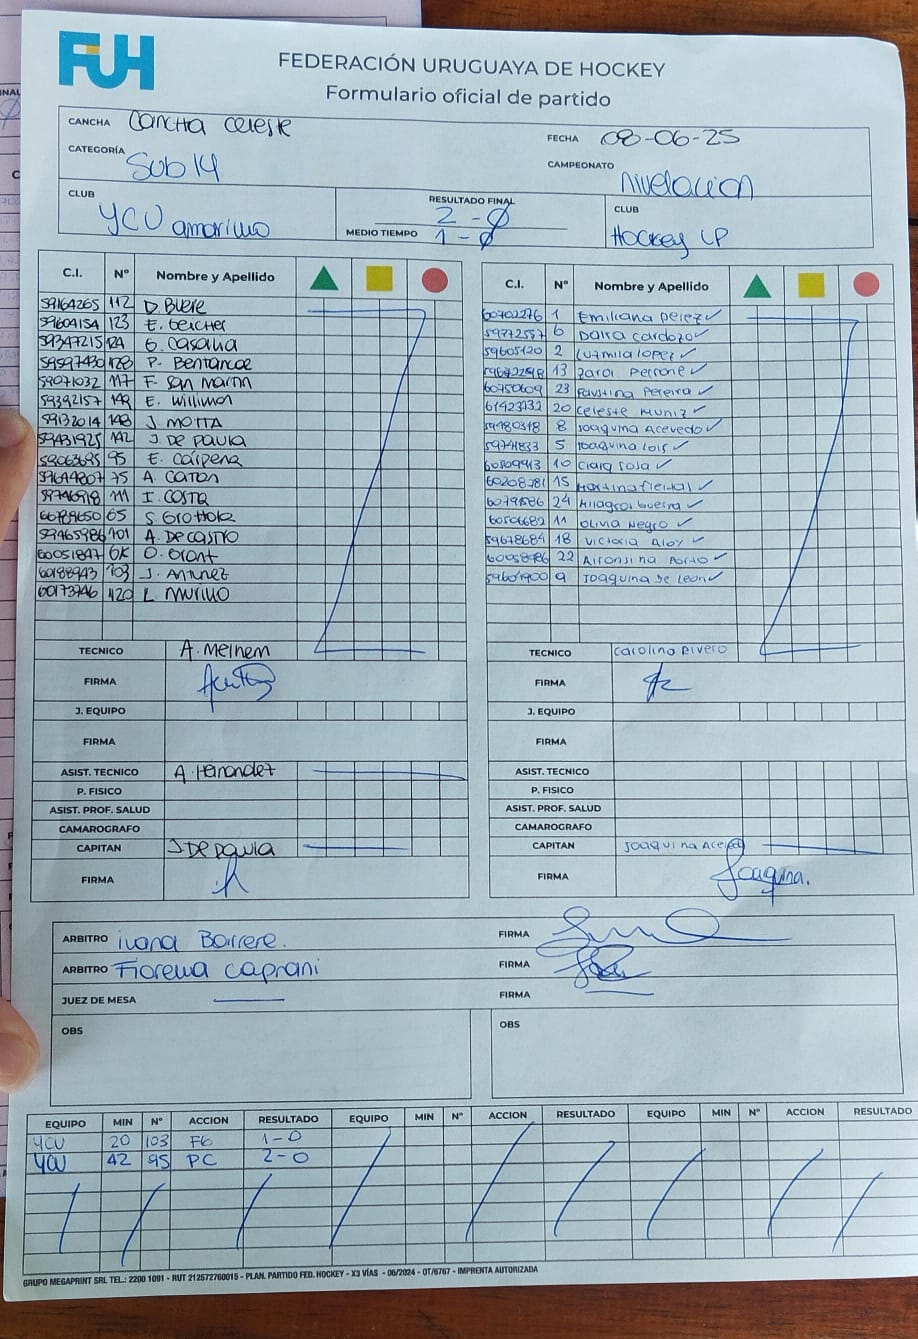 FUH
FEDERACIÓN URUGUAYA DE HOCKEY
Formulario oficial de partido
CANCHA Cancha celeste
FECHA 08-06-25
CATEGORÍA Sub 14
CAMPEONATO Nivelacion
CLUB YCU amarillo
RESULTADO FINAL 2-0
MEDIO TIEMPO 1-0
CLUB Hockey LP
C.I. Nº Nombre y Apellido
59164265 112 D. Buere
59604154 123 E.
59347215 G. Casalla
128 P. Bentancor
59071032 117 F. San Martin
59392157 149 E. Willimon
59132014 148 J. MOTTA
59431925 142 J. De paula
95 E.
75 A.
59746918 111 I. COSTA
65 S. Grottola
59465986 101 A. DE CASTRO
60051847 GK O. Grant
60188943 103 J. Antunez
60173746 120 L. Murillo
TECNICO A. Melhem
FIRMA
J. EQUIPO
FIRMA
ASIST. TECNICO A. Hernandez
P. FISICO
ASIST. PROF. SALUD
CAMAROGRAFO
CAPITAN J DE paula
FIRMA
C.I. Nº Nombre y Apellido
60702276 1 Emiliana perez
6 Daira cardozo
59605120 2 Luzmila lopez
13 Zarai Perrone
60750609 23 Faustina Pereira
20 celeste Muniz
59180318 8 Joaquina Acevedo
5 Joaquina Lois
10 Clara sosa
60208781 15 Martina
24 Milagros Guerra
60506682 11 Olivia Negro
59678684 18 Victoria Aloy
22 Alfonsina Porto
9 Joaquina de Leon
TECNICO Carolina Rivero
FIRMA
J. EQUIPO
FIRMA
ASIST. TECNICO
P. FISICO
ASIST. PROF. SALUD
CAMAROGRAFO
CAPITAN Joaquina
FIRMA Joaquina.
ARBITRO ivana Barrere.
FIRMA
ARBITRO Fiorella Caprani
FIRMA
JUEZ DE MESA
FIRMA
OBS
OBS
EQUIPO MIN Nº ACCION RESULTADO EQUIPO MIN Nº ACCION RESULTADO EQUIPO MIN Nº ACCION RESULTADO
YCU 20 103 FG 1-0
YCU 42 95 PC 2-0
GRUPO MEGAPRINT SRL TEL.: 2200 1091 - RUT 212572760015 - PLAN. PARTIDO FED. HOCKEY - X3 VÍAS - 06/2024 - OT/6767 - IMPRENTA AUTORIZADA